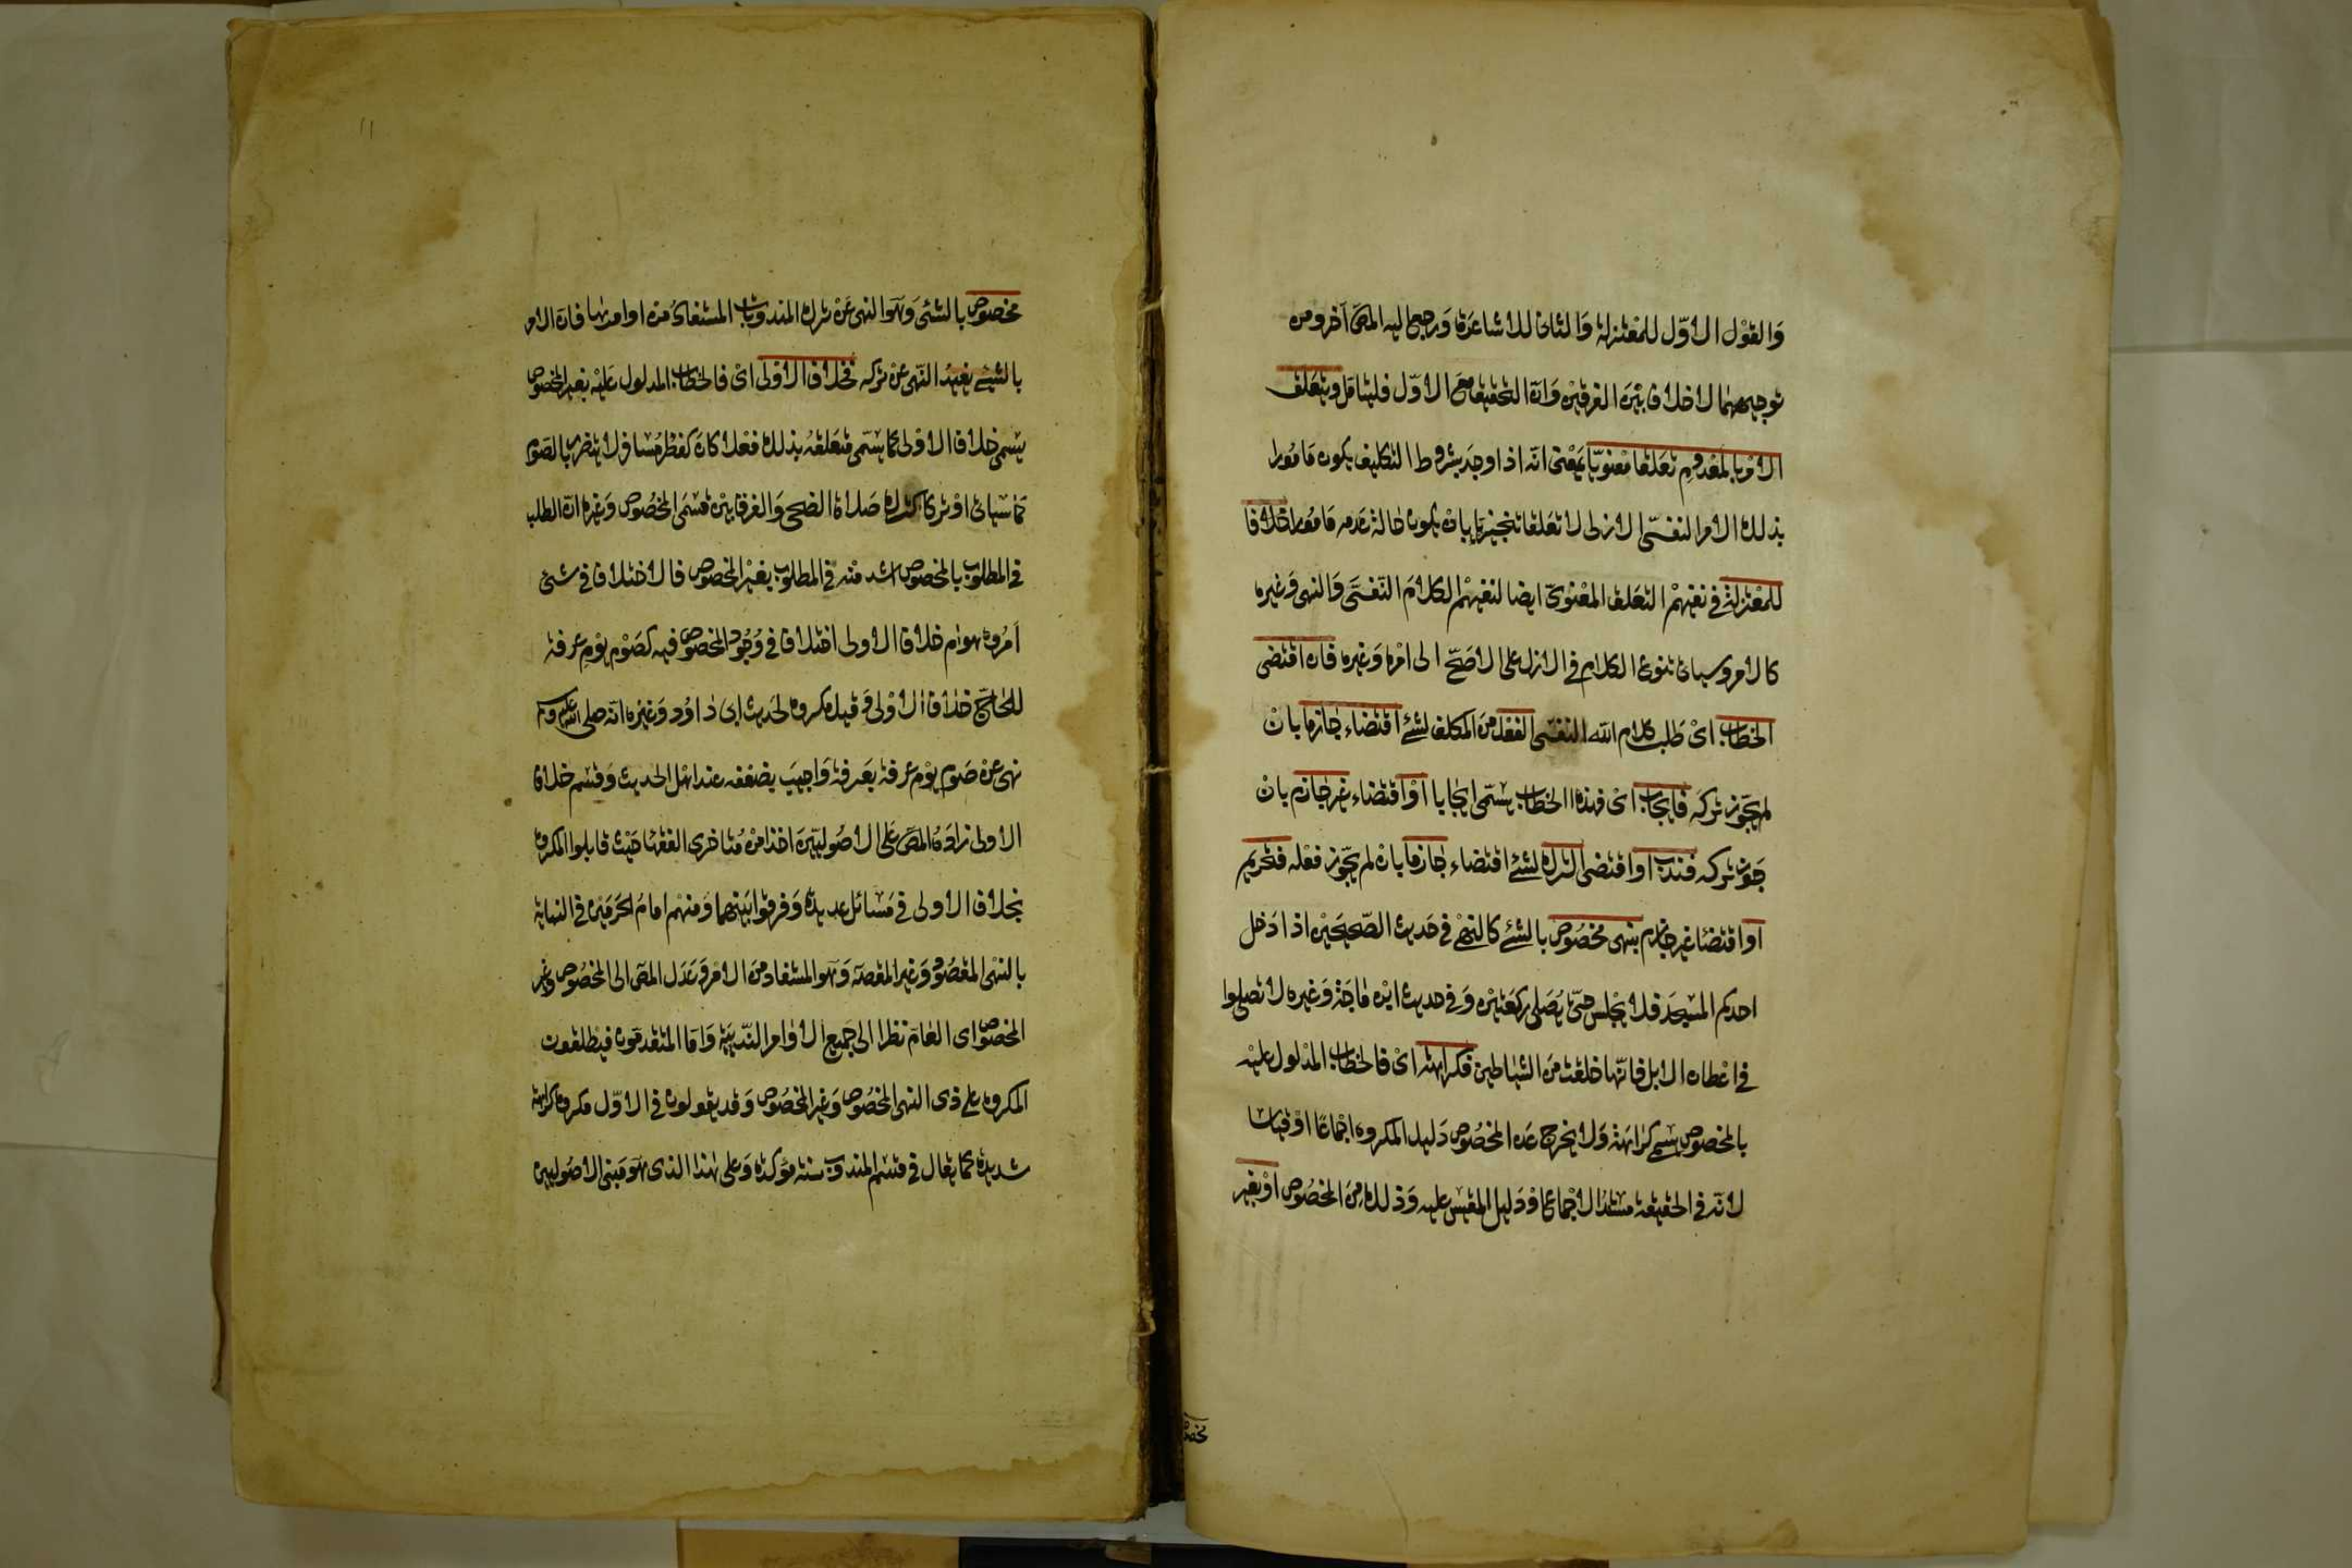 والقول الاوّل للمعتزلة والثانى للاشاعرة ورجع اليه المص آخرا ومن
توجيههما لا خلاف بين الفرقين وان التحقيق مع الاوّل فليتامل ويتعلق
الامر بالمعدوم تعلقا معنويّا بمعنى انه اذا وجد بشروط التكليف يكون مامورا
بذلك الامر النفسىّ الازلى لا تعلقا تنجيزيا بان يكون حالة عدمه مامورا خلافا
للمعتزلة فى نفيهم التعلق المعنوىّ ايضا لنفيهم الكلام النّفسىّ والنهى وغيره
كالامر وسياتى تنوع الكلام فى الازل على الاصحّ الى امر وغيره فان اقتضى
الخطاب اى طلب كلام الله النفسى الفعل من المكلف لشئ اقتضاء جازما بان
لم يجوّز تركه فايجاب اى فهذا الخطاب يسمّى ايجابا او اقتضاء غير جازم بان
جوّز تركه فندب او اقتضى الترك لشئ اقتضاء جازما بان لم يجوّز فعله فتحريم
او اقتضاء غير جازم بنهى مخصوص بالشئ كالنهى فى حديث الصّحيحين اذا دخل
احدكم المسجد فلا يجلس حتى يصلى ركعتين وفى حديث ابن ماجة وغيره لا تصلوا
فى اعطان الابل فانّها خلقت من الشياطين فكراهة اى فالخطاب المدلول عليه
بالمخصوص يسمى كراهة ولا يخرج عن المخصوص دليل المكروه اجماعا او قياسا
لانّه فى الحقيقة مستند الاجماع او دليل المقيس عليه وذلك من المخصوص او بغير
مخصوص
مخصوص بالشئ وهو النهى عن ترك المندوبات المستفاد من اوامرها فان الامر
بالشئ يفيد النّهى عن تركه فخلاف الاولى اى فالخطاب المدلول عليه بغير المخصوص
يسمى خلاف الاولى كما يسمّى متعلقه بذلك فعلا كان كفطر مسافر لا يتضرر بالصّوم
كما سياتى او تركا كترك صلاة الضحى والفرق بين قسمى المخصوص وغيره ان الطلب
فى المطلوب بالمخصوص اشد منه فى المطلوب بغير المخصوص فالاختلاف فى شئ
امكروه هو ام خلاف الاولى اختلاف فى وجود المخصوص فيه كصوم يوم عرفة
للحاج خلاف الاولى وقيل مكروه لحديث ابى داود وغيره انه صلى الله عليه وسلم
نهى عن صوم يوم عرفة بعرفة واجيب بضعفه عند اهل الحديث وقسم خلاف
الاولى زاده المص على الاصوليين اخذا من متاخرى الفقها حيث قابلوا المكروه
بخلاف الاولى فى مسائل عديدة وفرقوا بينهما ومنهم امام الحرمين فى النهاية
بالنهى المقصود وغير المقصود وهو المستفاد من الامر وعدل المص الى المخصوص وغير
المخصوص اى العام نظرا الى جميع الاوامر النّدبية واما المتقدمون فيطلقون
المكروه على ذى النهى المخصوص وغير المخصوص وقد يقولون فى الاوّل مكروه كراهة
شديدة كما يقال فى قسم المندوب سنة مؤكدة وعلى هذا الذى هو مبنى الاصوليين